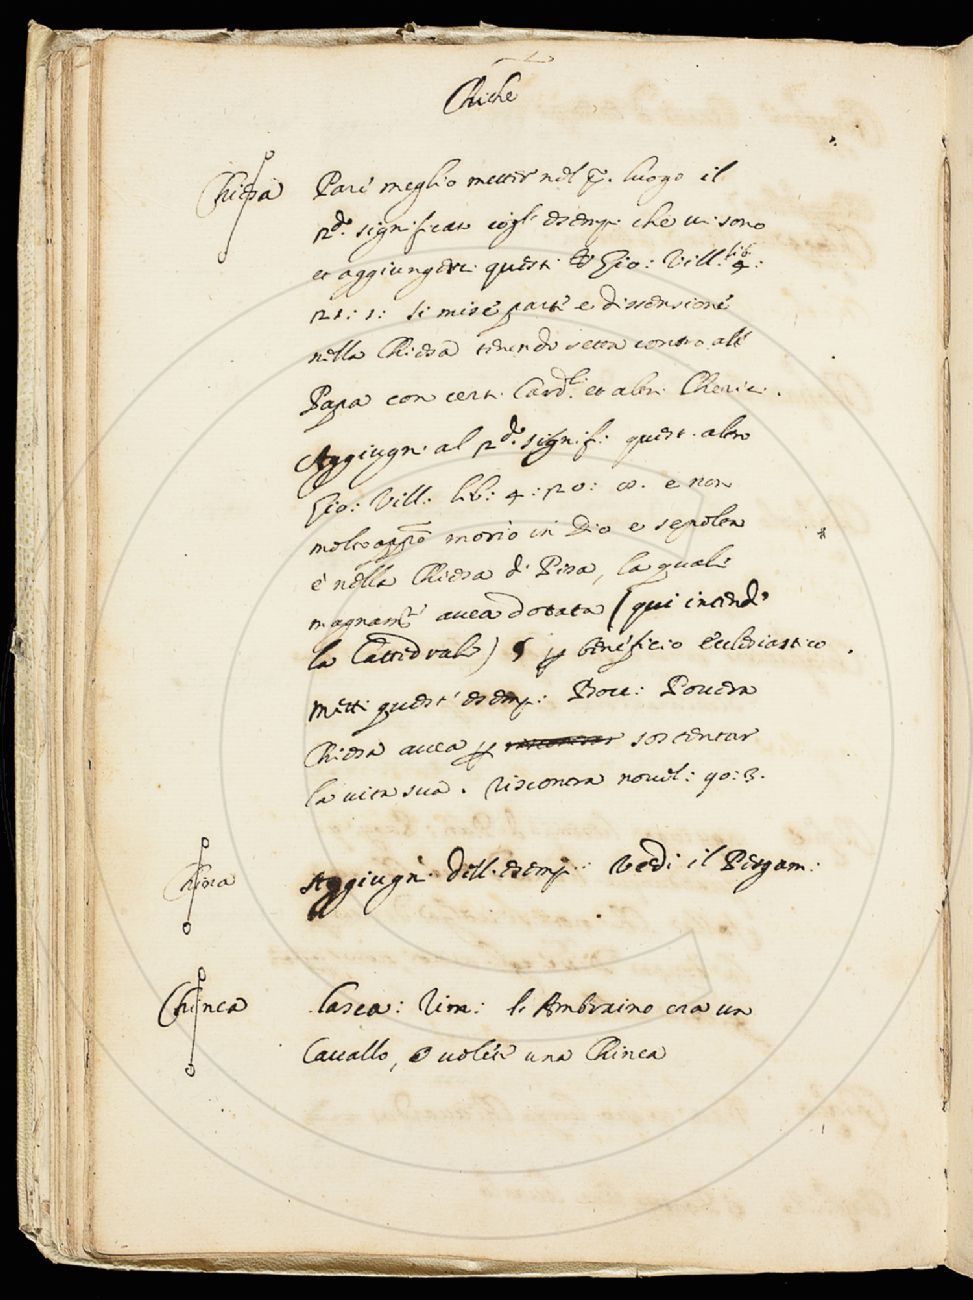 Chiche
Chiesa Pare meglio metter nel p.º luogo il
2.do significato cogl' esemp. che vi sono
et aggiungere quest. Gio: Vill: lib: 4:
21: 1: si mise parte e dissensione
nella Chiesa tenendo setta contro all
Papa con cert. Card.li et altri Cheric.
Aggiugn. al 2.do signif: quest. altro
Gio: Vill: lib: 4: 20: e non
molto appresso morio in Dio e sepolta
è nella Chiesa di Pisa, la quale
magnam.te avea dotata (qui intende
la Cattedrale) § p benefficio Ecclesiastico.
Metti quest' esemp: Bocc: Povera
Chiesa avea p sostentar
la vita sua. Riscontra novel: 90: 3.
China Aggiugn. dell. esemp. Vedi il Pergam:
Chinea Lasca: Rim: l. Ambraino era un
Cavallo, o volete una Chinea